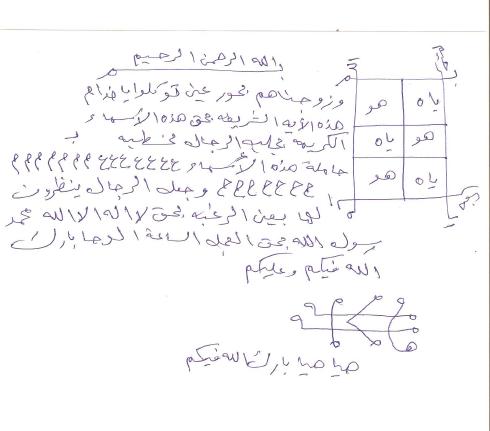 بالله الرحمن الرحيم
وزوجناهم بحور عين توكلوا يا خدام
هذه الأيه الشريفه بحق هذه الأسماء
الكريمه بجلب الرجال لخطبه
حاملة هذه الأسماء ععععععع ٣٣٣٣٣٣٣
ععععععع وجعل الرجال ينظرون
لها بعين الرغبه بحق لا اله الا الله محمد
رسول الله بحق العجل الساعة الوحا بارك
الله فيكم وعليكم
ياه هو
هو ياه
ياه هو
هيا هيا بارك الله فيكم